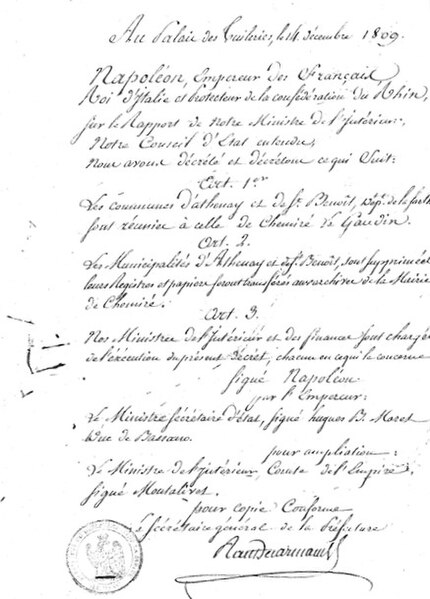 Au Palais des Tuileries, le 14 décembre 1809.
Napoléon, Empereur des Français
Roi d'Italie et protecteur de la confédération du Rhin,
Sur le Rapport de notre Ministre de l'Intérieur,
Notre Conseil d'Etat entendu,
Nous avons décrété et décrétons ce qui Suit:
Art. 1er
Les Communes d'athenay et de St. Benoît, Dépt. de la Sarthe
sont réunies à celle de Chemiré Le Gaudin.
Art. 2.
Les Municipalités d'Athenay et de St. Benoît, sont supprimées
leurs Registres et papiers seront transférés aux archives de la Mairie
de Chemiré.
Art. 3.
Nos Ministres de l'Intérieur et des finances sont chargés
de l'exécution du présent Décret, chacun en ce qui le concerne
signé Napoléon
par l'Empereur:
Le Ministre Secrétaire d'état, signé hugues B. Maret
Duc de Bassano.
pour ampliation:
Le Ministre de l'Intérieur Comte de l'Empire,
signé Montalivet.
pour copie Conforme
Le Secrétaire général de la Préfecture